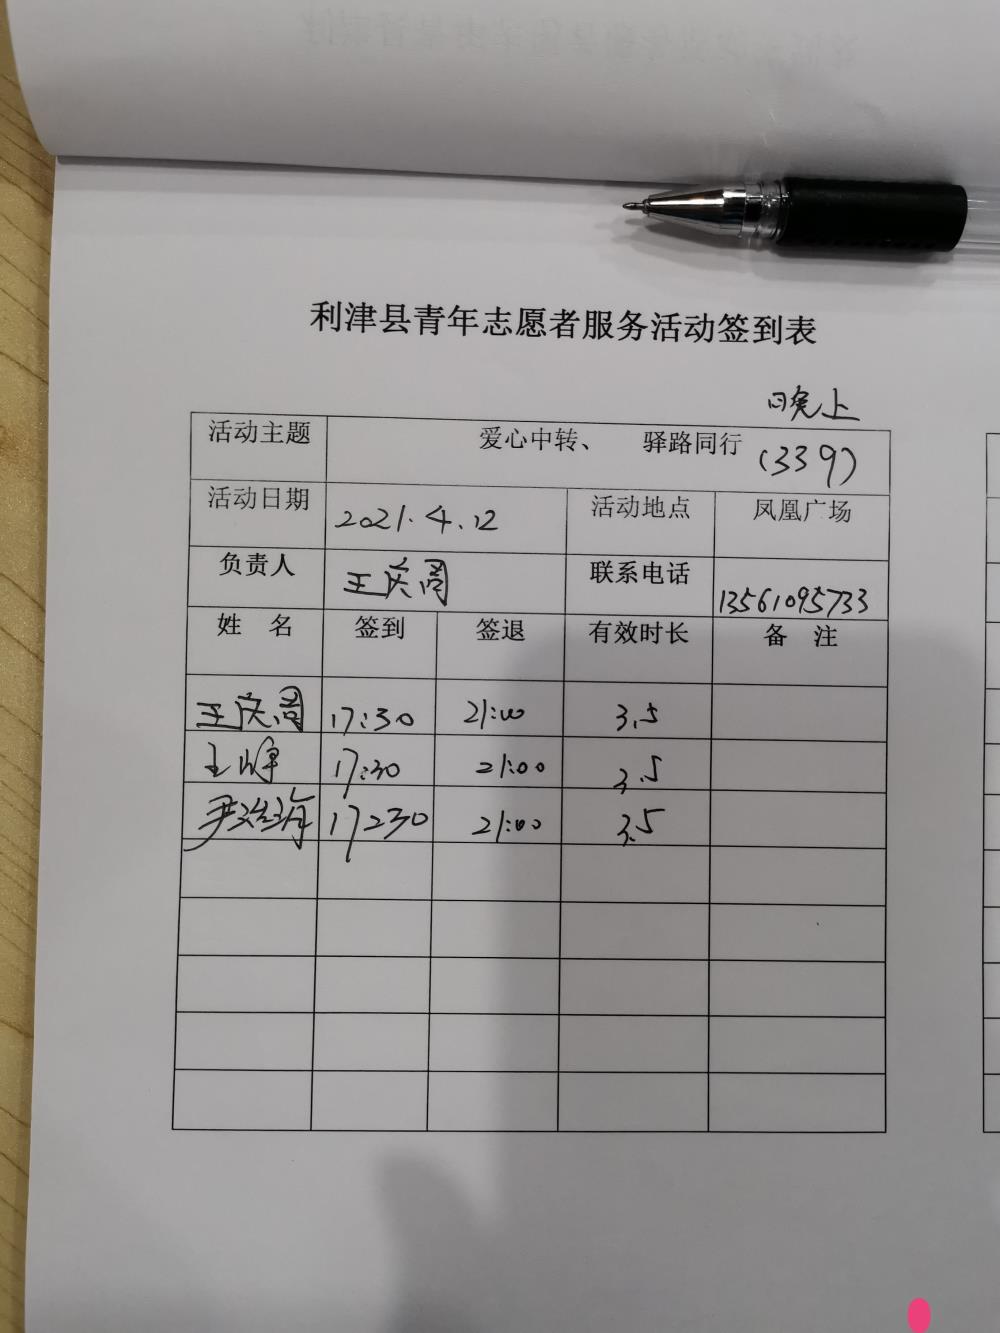 利津县青年志愿者服务活动签到表
晚上
活动主题 爱心中转、 驿路同行 (339)
活动日期 2021.4.12 活动地点 凤凰广场
负责人 王庆周 联系电话 13561095733
姓 名 签到 签退 有效时长 备 注
王庆周 17:30 21:00 3.5
王峰 17:30 21:00 3.5
尹 17:30 21:00 3.5